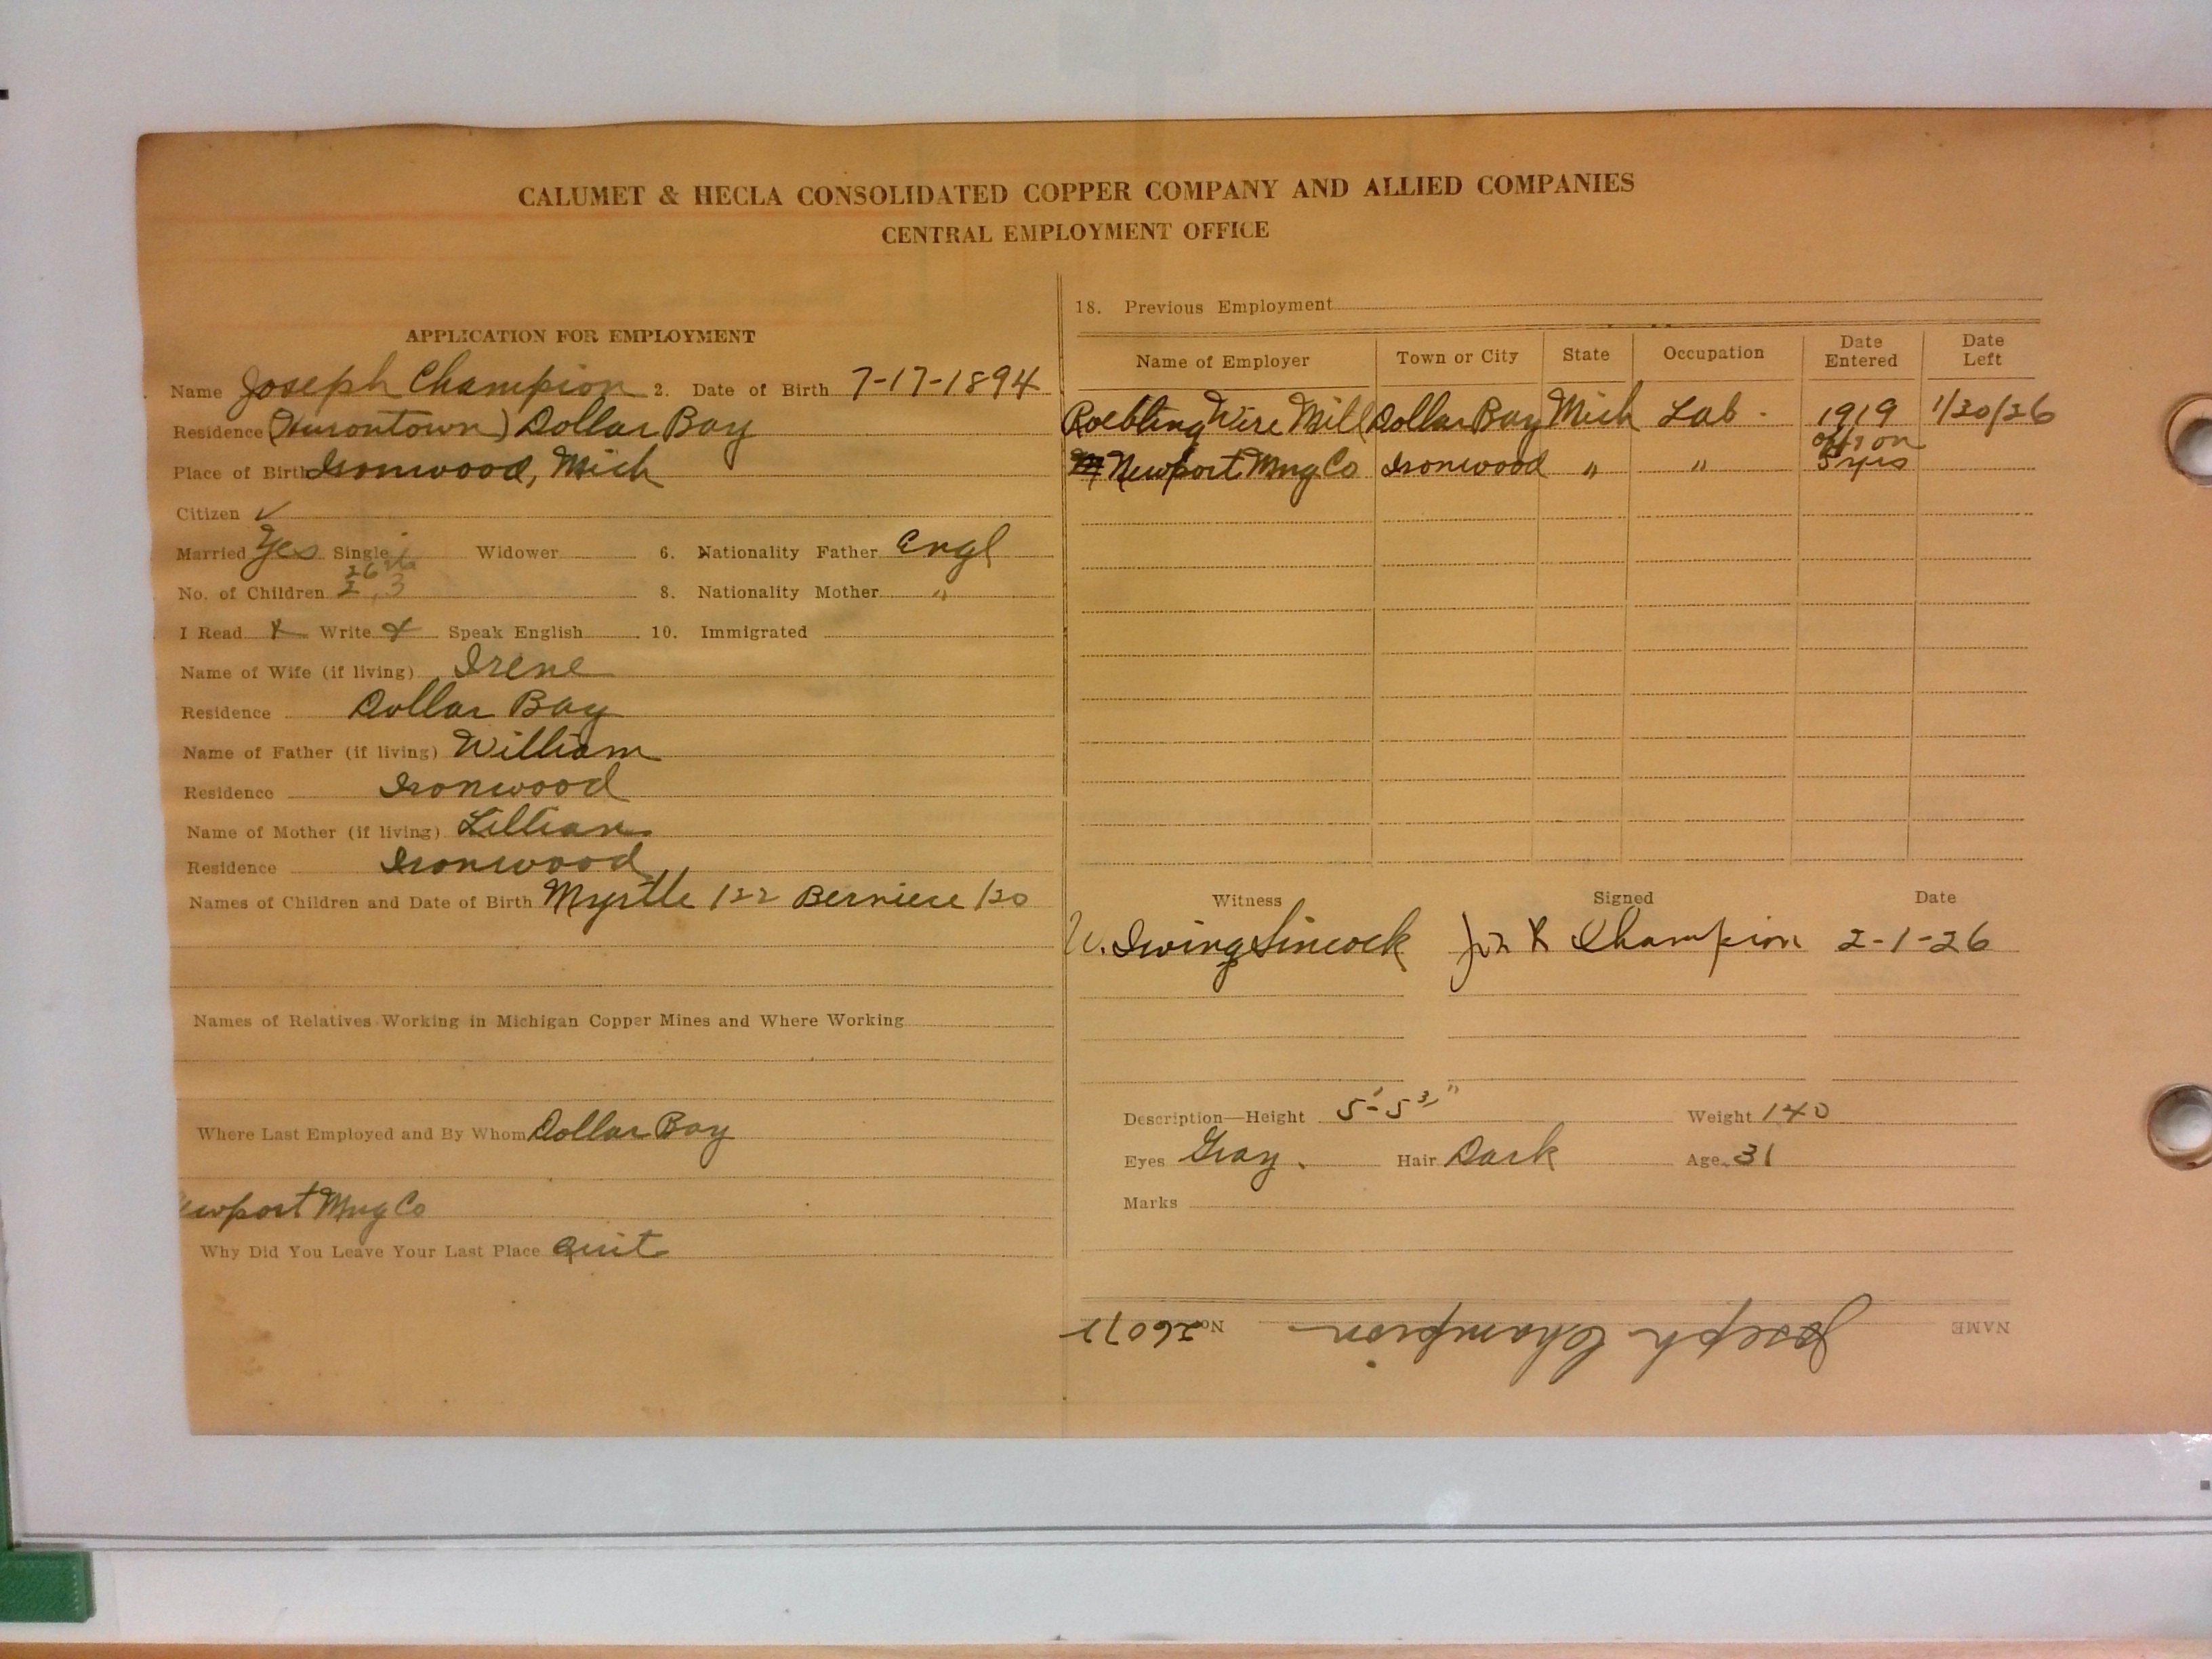 CALUMET & HECLA CONSOLIDATED COPPER COMPANY AND ALLIED COMPANIES
CENTRAL EMPLOYMENT OFFICE
APPLICATION FOR EMPLOYMENT
Name Joseph Champion 2. Date of Birth 7-17-1894
Residence (Hurontown) Dollar Bay
Place of Birth Ironwood, Mich
Citizen ✓
Married Yes Single Widower 6. Nationality Father Engl
No. of Children 2, 3 8. Nationality Mother "
I Read x Write x Speak English 10. Immigrated
Name of Wife (if living) Irene
Residence Dollar Bay
Name of Father (if living) William
Residence Ironwood
Name of Mother (if living) Lillian
Residence Ironwood
Names of Children and Date of Birth Myrtle /22 Berniece /20
Names of Relatives Working in Michigan Copper Mines and Where Working
Where Last Employed and By Whom Dollar Bay
ewport Mng Co
Why Did You Leave Your Last Place Quit
18. Previous Employment
Name of Employer Town or City State Occupation Date Entered Date Left
Roebling Wire Mill Dollar Bay Mich Lab. 1919 1/20/26
Newport Mng Co Ironwood " " off & on 5 yrs
Witness Signed Date
W. Irving Sincock Champion 2-1-26
Description—Height 5'-5 Weight 140
Eyes Gray. Hair Dark Age 31
Marks
NAME Joseph Champion No. 26071